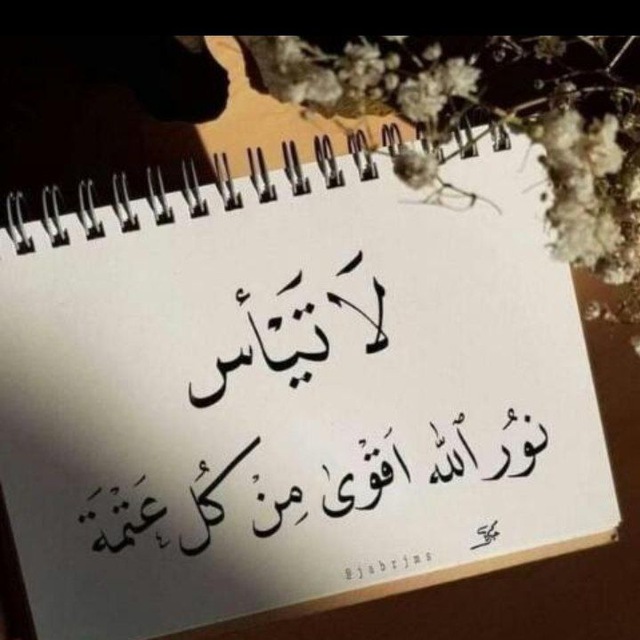 لَا تَيْأَس
نُورُ ٱللّٰه اَقْوىٰ مِنْ كُل عَتْمَةَ
@jsbrjms